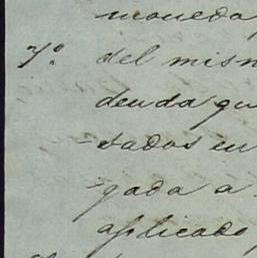 moneda,
7.º del mism
deuda qu
-tados en
-gada a
aplicado,